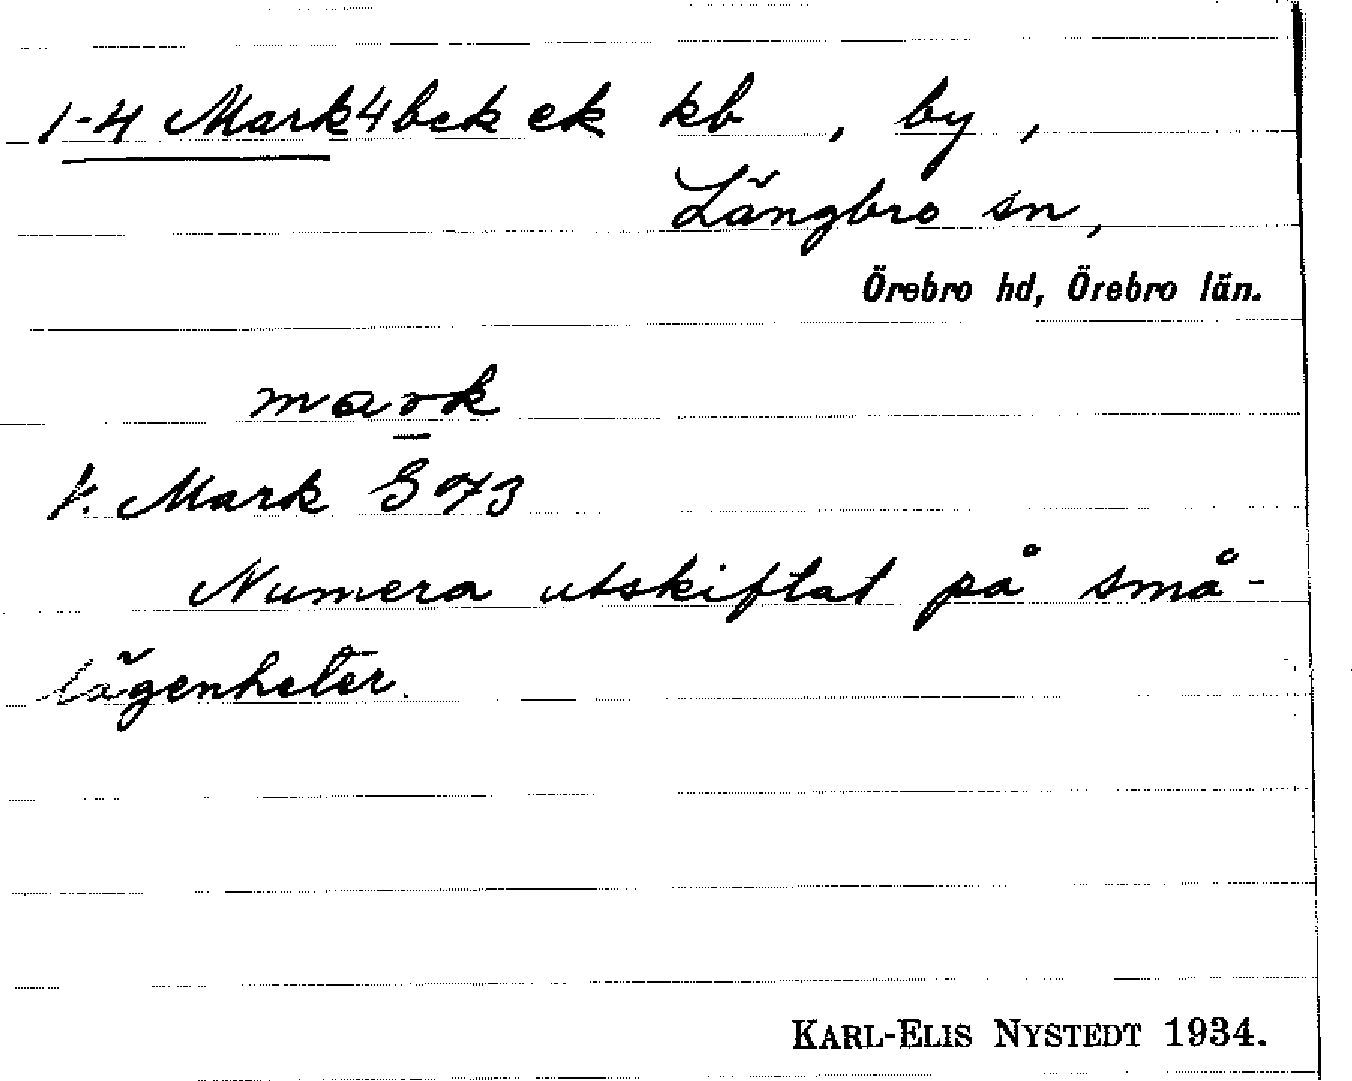 1-4 Mark 4 bck ek kb , by ,
Längbro sn,
Örebro hd, Örebro län.
mark
1. Mark S 73
Numera utskiftat på små-
lägenheter.
KARL-ELIS NYSTEDT 1934.